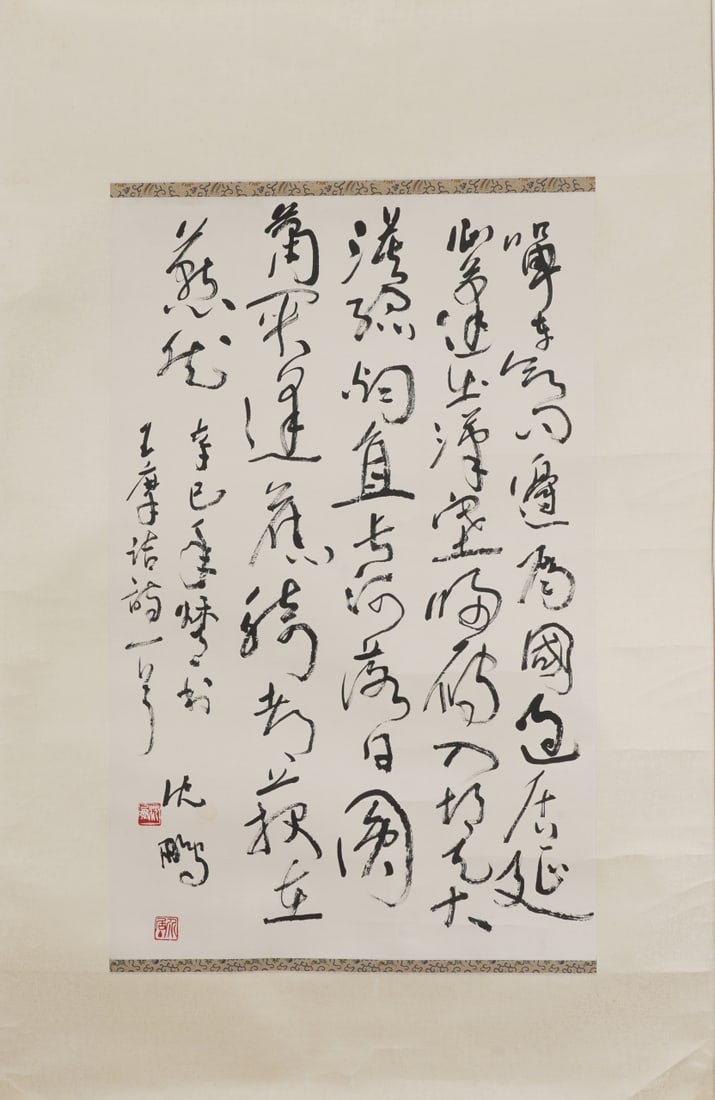 單車欲問邊屬國過居延
征蓬出漢塞歸雁入胡天大
漠孤煙直長河落日圓
蕭關逢騎都護在
燕然
辛巳年書
王摩詰詩一首
沈鵬